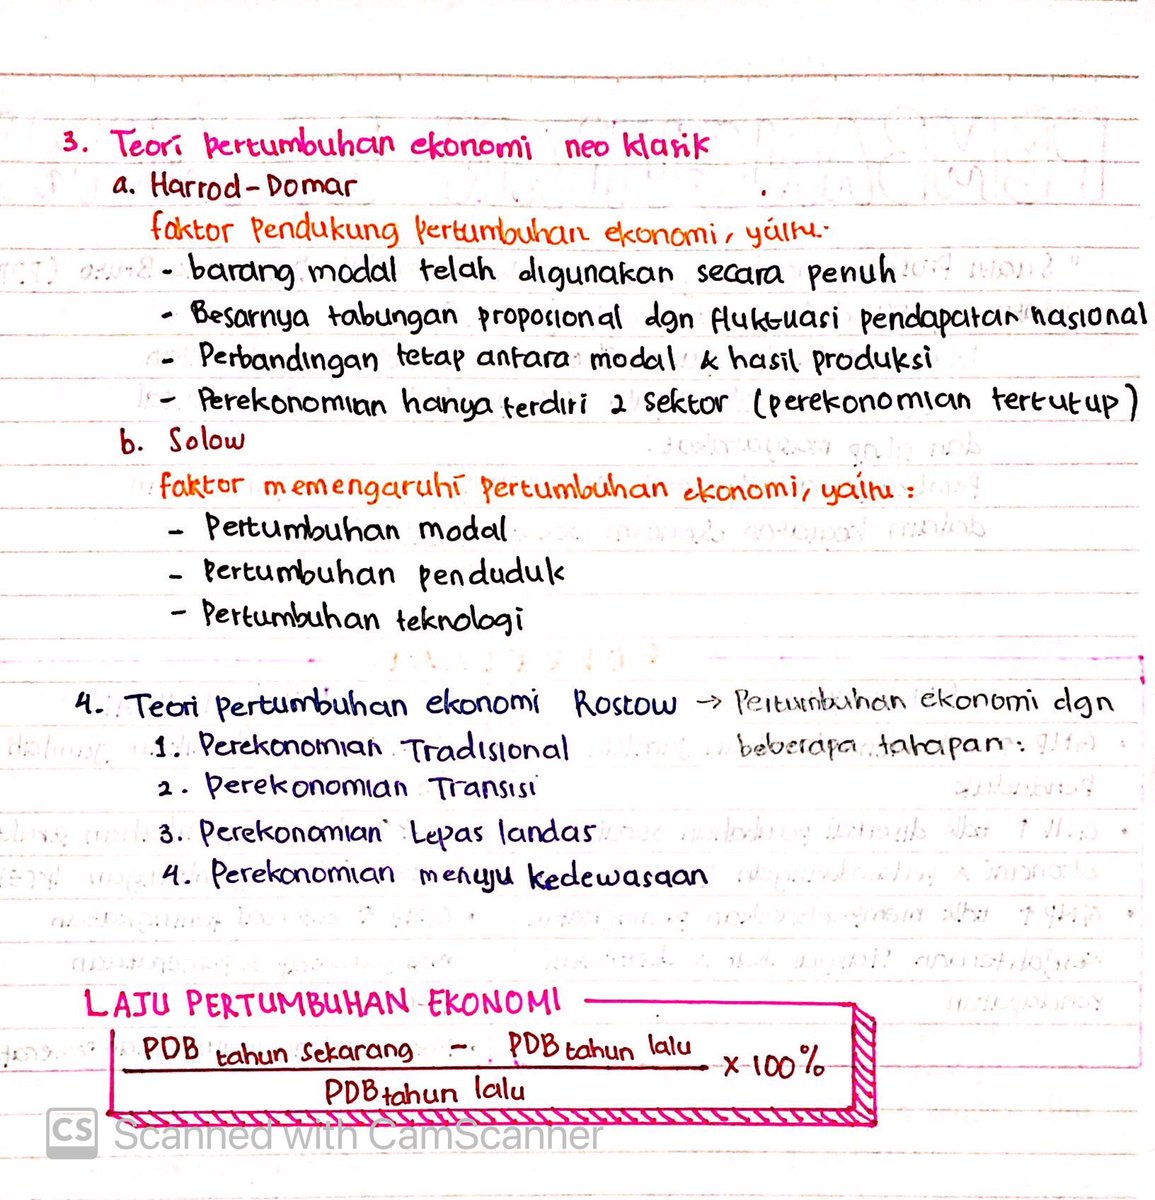 3. Teori pertumbuhan ekonomi neo klasik
a. Harrod-Domar
faktor pendukung pertumbuhan ekonomi, yaitu:
- barang modal telah digunakan secara penuh
- Besarnya tabungan proposional dgn fluktuasi pendapatan nasional
- Perbandingan tetap antara modal & hasil produksi
- Perekonomian hanya terdiri 2 sektor (perekonomian tertutup)
b. Solow
faktor memengaruhi pertumbuhan ekonomi, yaitu:
- Pertumbuhan modal
- Pertumbuhan penduduk
- Pertumbuhan teknologi
4. Teori pertumbuhan ekonomi Rostow → Pertumbuhan ekonomi dgn
beberapa tahapan:
1. Perekonomian Tradisional
2. Perekonomian Transisi
3. Perekonomian Lepas landas
4. Perekonomian menuju kedewasaan
LAJU PERTUMBUHAN EKONOMI
PDB tahun sekarang - PDB tahun lalu
x 100%
PDB tahun lalu
CS Scanned with CamScanner